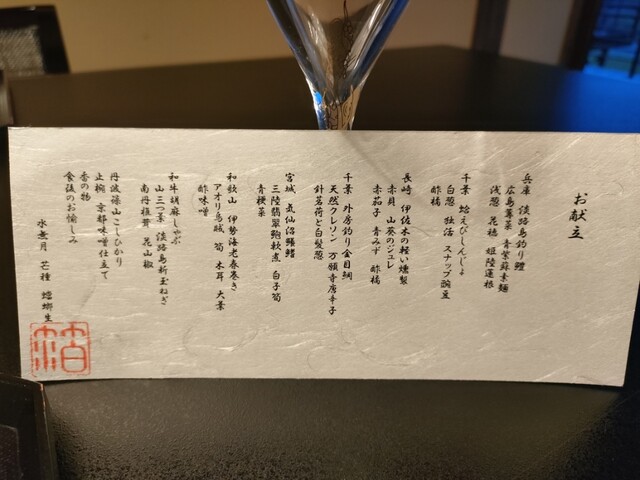 お献立
兵庫 淡路島釣り鱧
広島蓴菜 青紫蘇素麺
浅葱 花穂 姫路蓮根
千葉 蛤えびしんじょ
白葱 独活 スナップ豌豆
酢橘
長崎 伊佐木の軽い燻製
赤貝 山葵のジュレ
赤茄子 青みず 酢橘
千葉 外房釣り金目鯛
天然クレソン 万願寺唐辛子
針茗荷と白髪葱
宮城 気仙沼鱶鰭
三陸翡翠鮑軟煮 白子筍
青梗菜
和歌山 伊勢海老春巻き
アオリ烏賊 筍 木耳 大葉
酢味噌
和牛胡麻しゃぶ
山三つ葉 淡路島新玉ねぎ
南丹椎茸 花山椒
丹波篠山こしひかり
止椀 京都味噌仕立て
香の物
食後のお愉しみ
水無月 芒種 蟷螂生